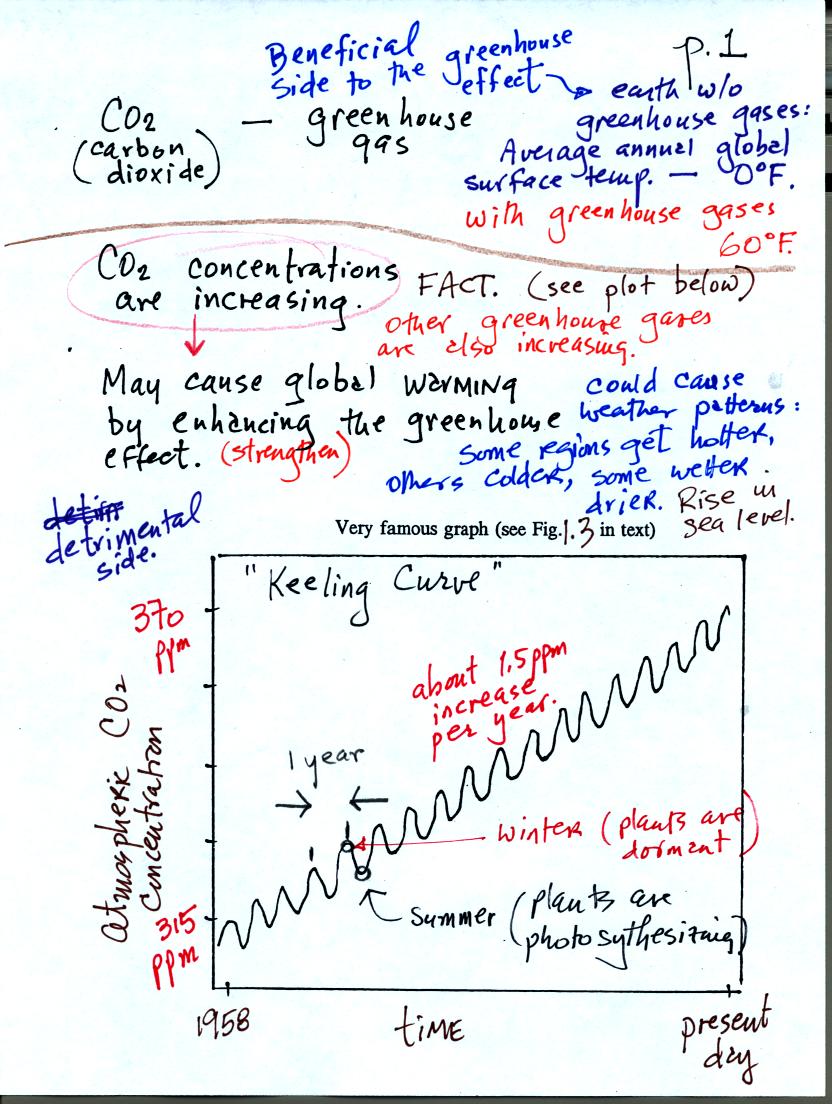 p.1
Beneficial
side to the greenhouse
effect → earth w/o
greenhouse gases:
Average annual global
surface temp. — 0°F.
with greenhouse gases
60°F.
CO2 — greenhouse
gas
(carbon
dioxide)
CO2 concentrations
are increasing.
FACT. (see plot below)
other greenhouse gases
are also increasing.
May cause global WARMING
by enhancing the greenhouse
effect. (strengthen)
could cause
weather patterns:
some regions get hotter,
others colder, some wetter
drier. Rise in
sea level.
detrimental
side.
Very famous graph (see Fig. 1.3 in text)
"Keeling Curve"
370
ppm
about 1.5 ppm
increase
per year.
1 year
Winter (plants are
dormant)
Summer (plants are
photosythesizing)
315
ppm
atmospheric CO2
concentration
1958
TIME
present
day